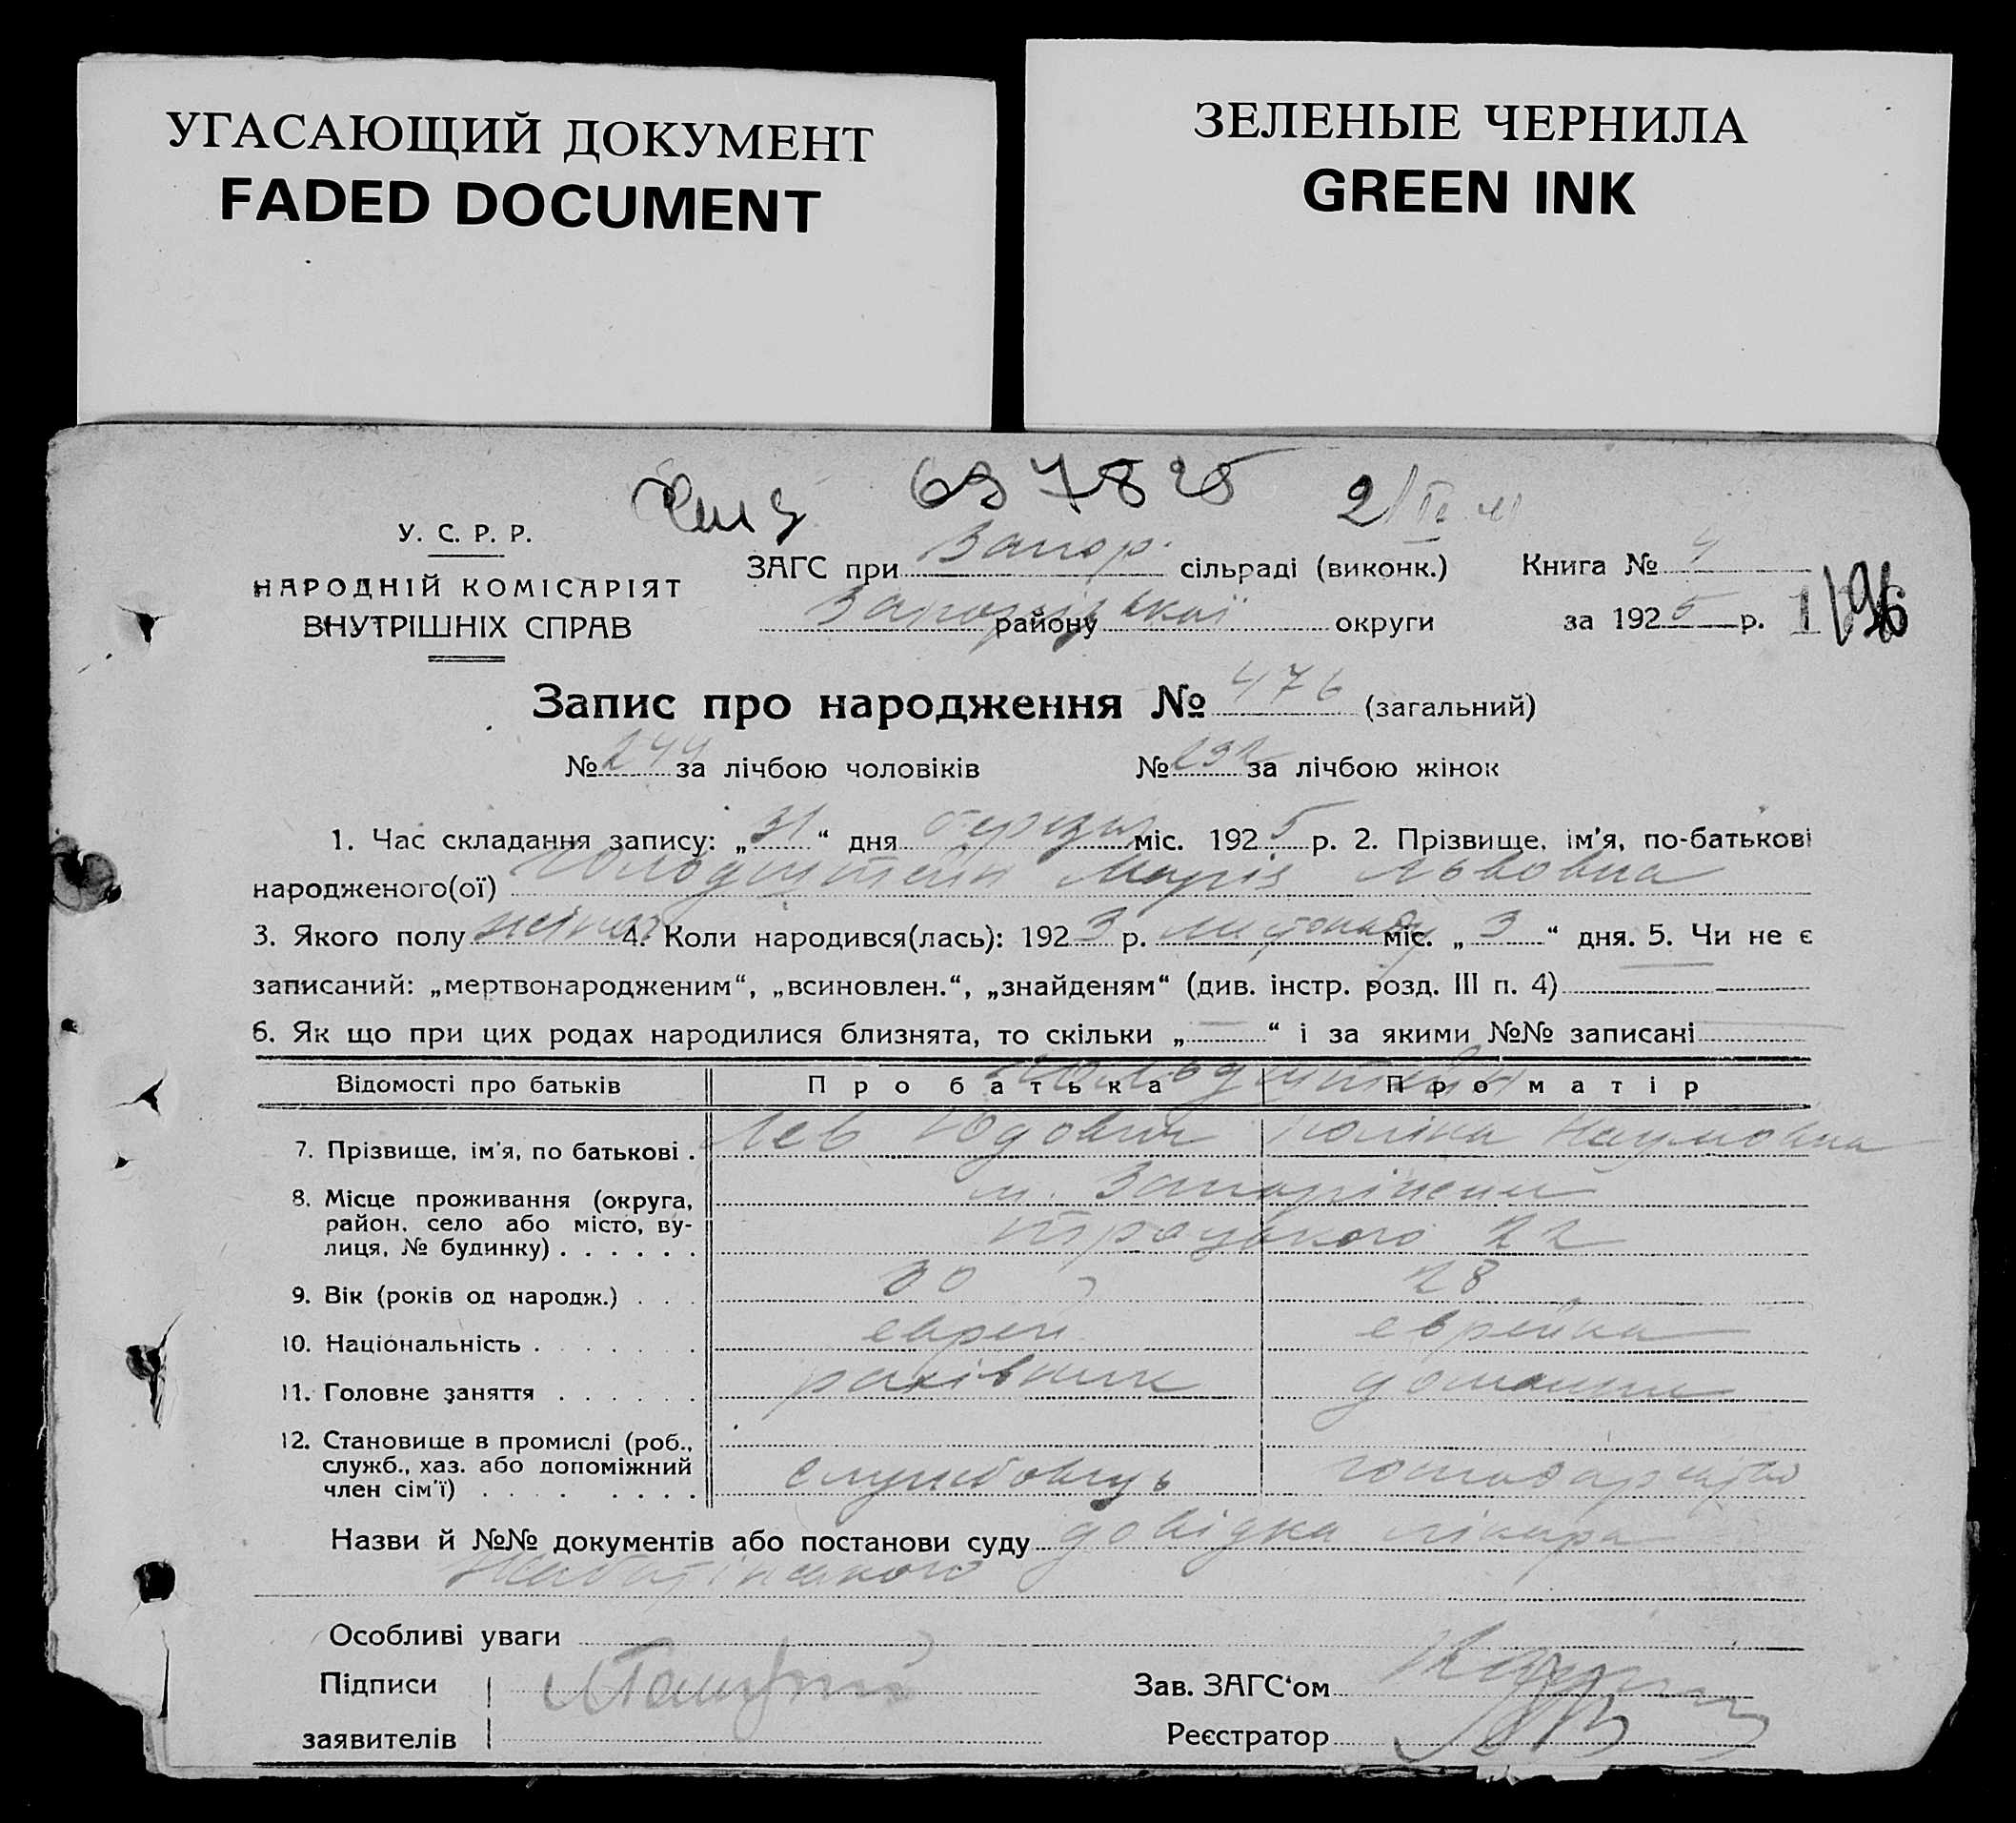 УГАСАЮЩИЙ ДОКУМЕНТ
FADED DOCUMENT
ЗЕЛЕНЫЕ ЧЕРНИЛА
GREEN INK
697825 2/
У. С. Р. Р.
НАРОДНІЙ КОМІСАРІЯТ
ВНУТРІШНІХ СПРАВ
ЗАГС при Запор. сільраді (виконк.) Книга № 4
району Запорізької округи за 1925 р. 196
Запис про народження № 476 (загальний)
№ 244 за лічбою чоловіків № 232 за лічбою жінок
1. Час складання запису: „31“ дня березня міс. 1925 р. 2. Прізвище, ім'я, по-батькові
народженого(ої) Гольдштейн Марія Львовна
3. Якого полу жіноч 4. Коли народився(лась): 1923 р. листопаду міс. „3“ дня. 5. Чи не є
записаний: „мертвонародженим“, „всиновлен.“, „знайденям“ (див. інстр. розд. III п. 4)
6. Як що при цих родах народилися близнята, то скільки „—“ і за якими №№ записані
Відомості про батьків Про батька Про матір
Гольдштейн
7. Прізвище, ім'я, по батькові . Лев Юдович Поліна Наумовна
8. Місце проживання (округа, м. Запоріжжя
район, село або місто, ву-
лиця, № будинку) . . . . . . Троцького 22
9. Вік (років од народж.) . . . 30 28
10. Національність . . . . . . . еврей еврейка
11. Головне заняття . . . . . . рахівник домашнє
12. Становище в промислі (роб.,
служб., хаз. або допоміжний
член сім'ї) . . . . . . . . службовець господарство
Назви й №№ документів або постанови суду довідка лікаря
Особливі уваги
Підписи
заявителів
Зав. ЗАГС‘ом
Реєстратор